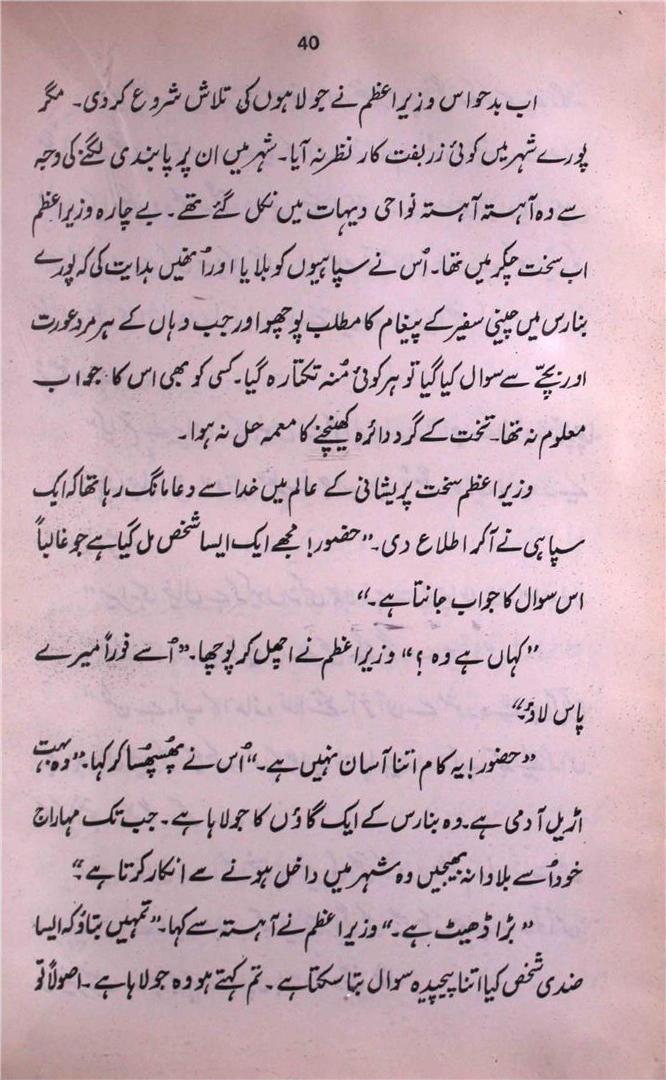 40
اب بدحواس وزیراعظم نے جولاہوں کی تلاش شروع کردی۔ مگر
پورے شہر میں کوئی زربفت کار نظر نہ آیا۔ شہر میں ان پر پابندی لگنے کی وجہ
سے وہ آہستہ آہستہ نواحی دیہات میں نکل گئے تھے۔ بے چارہ وزیراعظم
اب سخت چکر میں تھا۔ اُس نے سپاہیوں کو بلایا اور اُنھیں ہدایت کی کہ پورے
بنارس میں چینی سفیر کے پیغام کا مطلب پوچھو اور جب وہاں کے ہر مرد عورت
اور بچّے سے سوال کیا گیا تو ہر کوئی مُنہ تکتا رہ گیا۔ کسی کو بھی اس کا جواب
معلوم نہ تھا۔ تخت کے گرد دائرہ کھینچنے کا معمہ حل نہ ہوا۔
وزیراعظم سخت پریشانی کے عالم میں خدا سے دعا مانگ رہا تھا کہ ایک
سپاہی نے آکر اطلاع دی۔ ”حضور! مجھے ایک ایسا شخص مل گیا ہے جو غالباً
اس سوال کا جواب جانتا ہے۔“
”کہاں ہے وہ؟“ وزیراعظم نے اچھل کر پوچھا۔ ”اُسے فوراً میرے
پاس لاؤ۔“
”حضور! یہ کام اتنا آسان نہیں ہے۔“ اُس نے پھُسپھُسا کر کہا۔ ”وہ بہت
اڑیل آدمی ہے۔ وہ بنارس کے ایک گاؤں کا جولاہا ہے۔ جب تک مہاراج
خود اُسے بلاوا نہ بھیجیں وہ شہر میں داخل ہونے سے انکار کرتا ہے۔“
”بڑا ڈھیٹ ہے۔“ وزیراعظم نے آہستہ سے کہا۔ ”تمہیں بتاؤ کہ ایسا
ضدی شخص کیا اتنا پیچیدہ سوال بتا سکتا ہے۔ تم کہتے ہو وہ جولاہا ہے۔ اصولاً تو